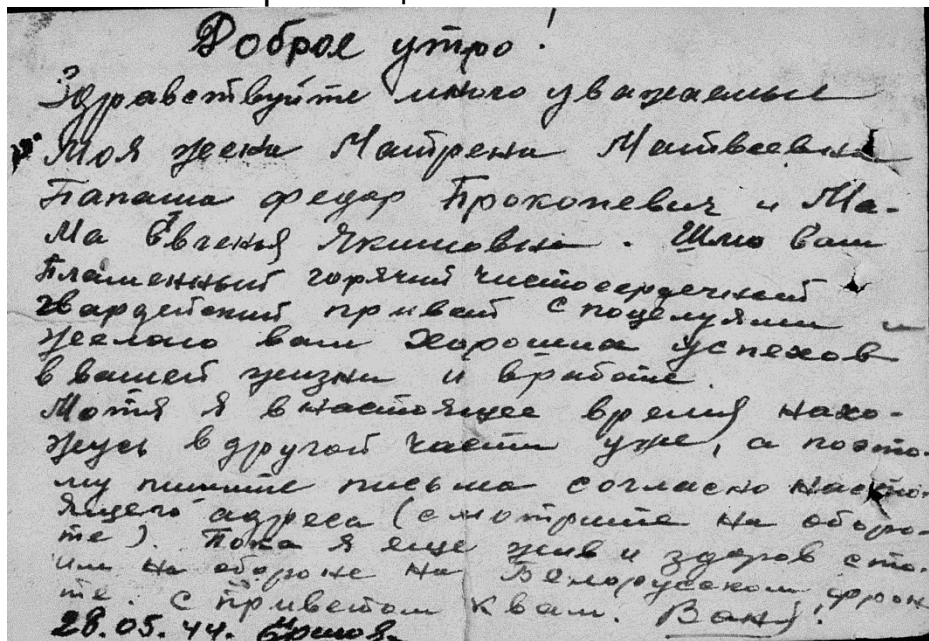 Доброе утро!
Здравствуйте много уважаемые
Моя жена Матрена Матвеевна
Папаша Федор Прокопевич и Ма-
Ма Евгенья Якимовна. Шлю вам
Пламенный горячий чистосердечный
гвардейский привет с поцелуями и
желаю вам хороших успехов
в вашей жизни и в работе.
Мотя я в настоящее время нахо-
жусь в другой части уже, а поэто-
му пишите письма согласно насто-
ящего адреса (смотрите на оборо-
те). Пока я еще жив и здоров сто-
им на обороне на Белорусском фрон
те. С приветом к вам. Ваня!
28.05.44.